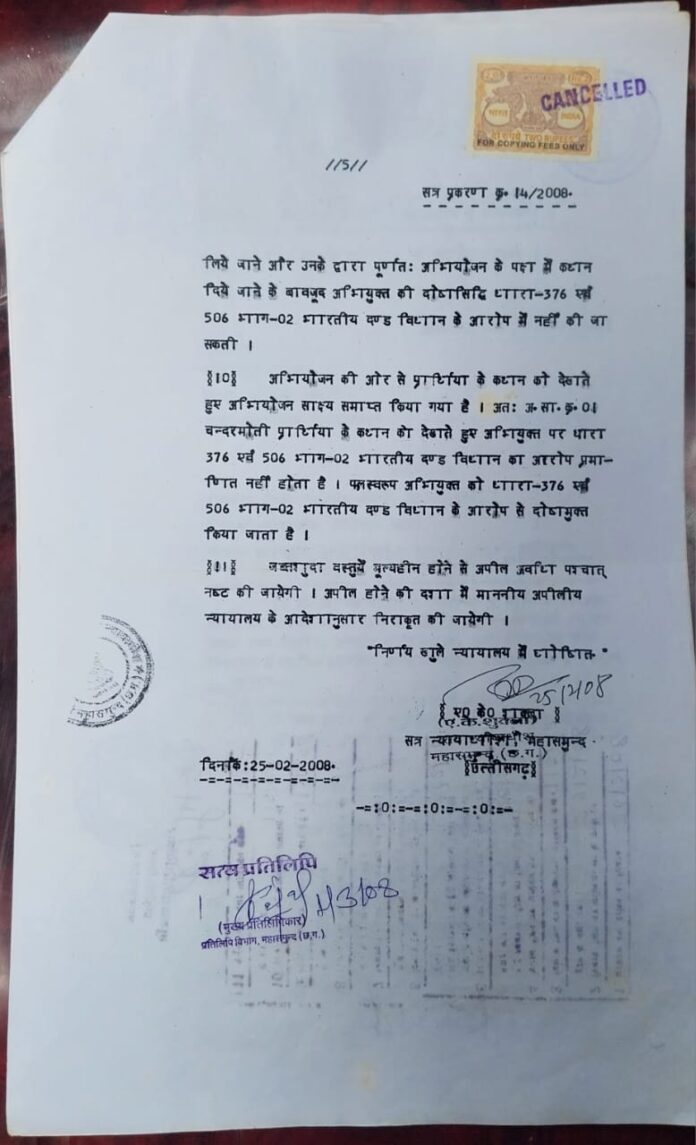 भारत
INDIA
दो रुपये TWO RUPEES
FOR COPYING FEES ONLY
CANCELLED
//5//
सत्र प्रकरण क्र. 14/2008.
लिये जाने और उनके द्वारा पूर्णतः अभियोजन के पक्ष में कथन
दिये जाने के बावजूद अभियुक्त की दोषसिद्धि धारा-376 एवं
506 भाग-02 भारतीय दण्ड विधान के आरोप में नहीं की जा
सकती ।
§10§ अभियोजन की ओर से प्रार्थिया के कथन को देखते
हुए अभियोजन साक्ष्य समाप्त किया गया है । अतः अ.सा.क्र.01
चन्दरमोती प्रार्थिया के कथन को देखते हुए अभियुक्त पर धारा
376 एवं 506 भाग-02 भारतीय दण्ड विधान का आरोप प्रमा-
णित नहीं होता है । फलस्वरूप अभियुक्त को धारा-376 एवं
506 भाग-02 भारतीय दण्ड विधान के आरोप से दोषमुक्त
किया जाता है ।
§11§ जब्तशुदा वस्तुयें मूल्यहीन होने से अपील अवधि पश्चात्
नष्ट की जायेगी । अपील होने की दशा में माननीय अपीलीय
न्यायालय के आदेशानुसार निराकृत की जायेगी ।
"निर्णय खुले न्यायालय में घोषित."
25/2/08
§ ए0 के0 शुक्ला §
(ए.के.शुक्ला)
सत्र न्यायाधीश, महासमुन्द
महासमुन्द (छ.ग.)
§छत्तीसगढ़§
दिनांक:25-02-2008.
-=:0:=-=:0:=-=:0:=-
सत्य प्रतिलिपि
(मुख्य प्रतिलिपिकार)
प्रतिलिपि विभाग, महासमुन्द (छ.ग.)